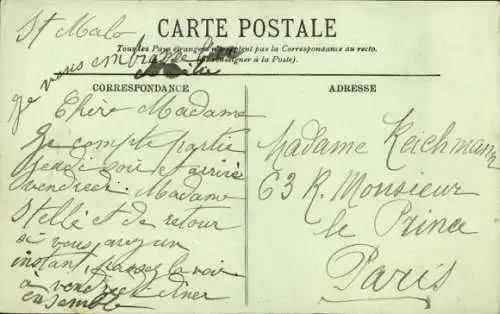 St Malo
CARTE POSTALE
Tous les Pays étrangers n'acceptent pas la Correspondance au recto.
(Se renseigner à la Poste).
Je vous embrasse bien
CORRESPONDANCE
Chère Madame
Je compte partir
Jeudi soir et arrivé
vendredi. Madame
Stelle et de retour
si vous avez un
instant passez la voir
à vendredi diner
ensemble
ADRESSE
Madame Reichmann
63 R. Monsieur
le Prince
Paris